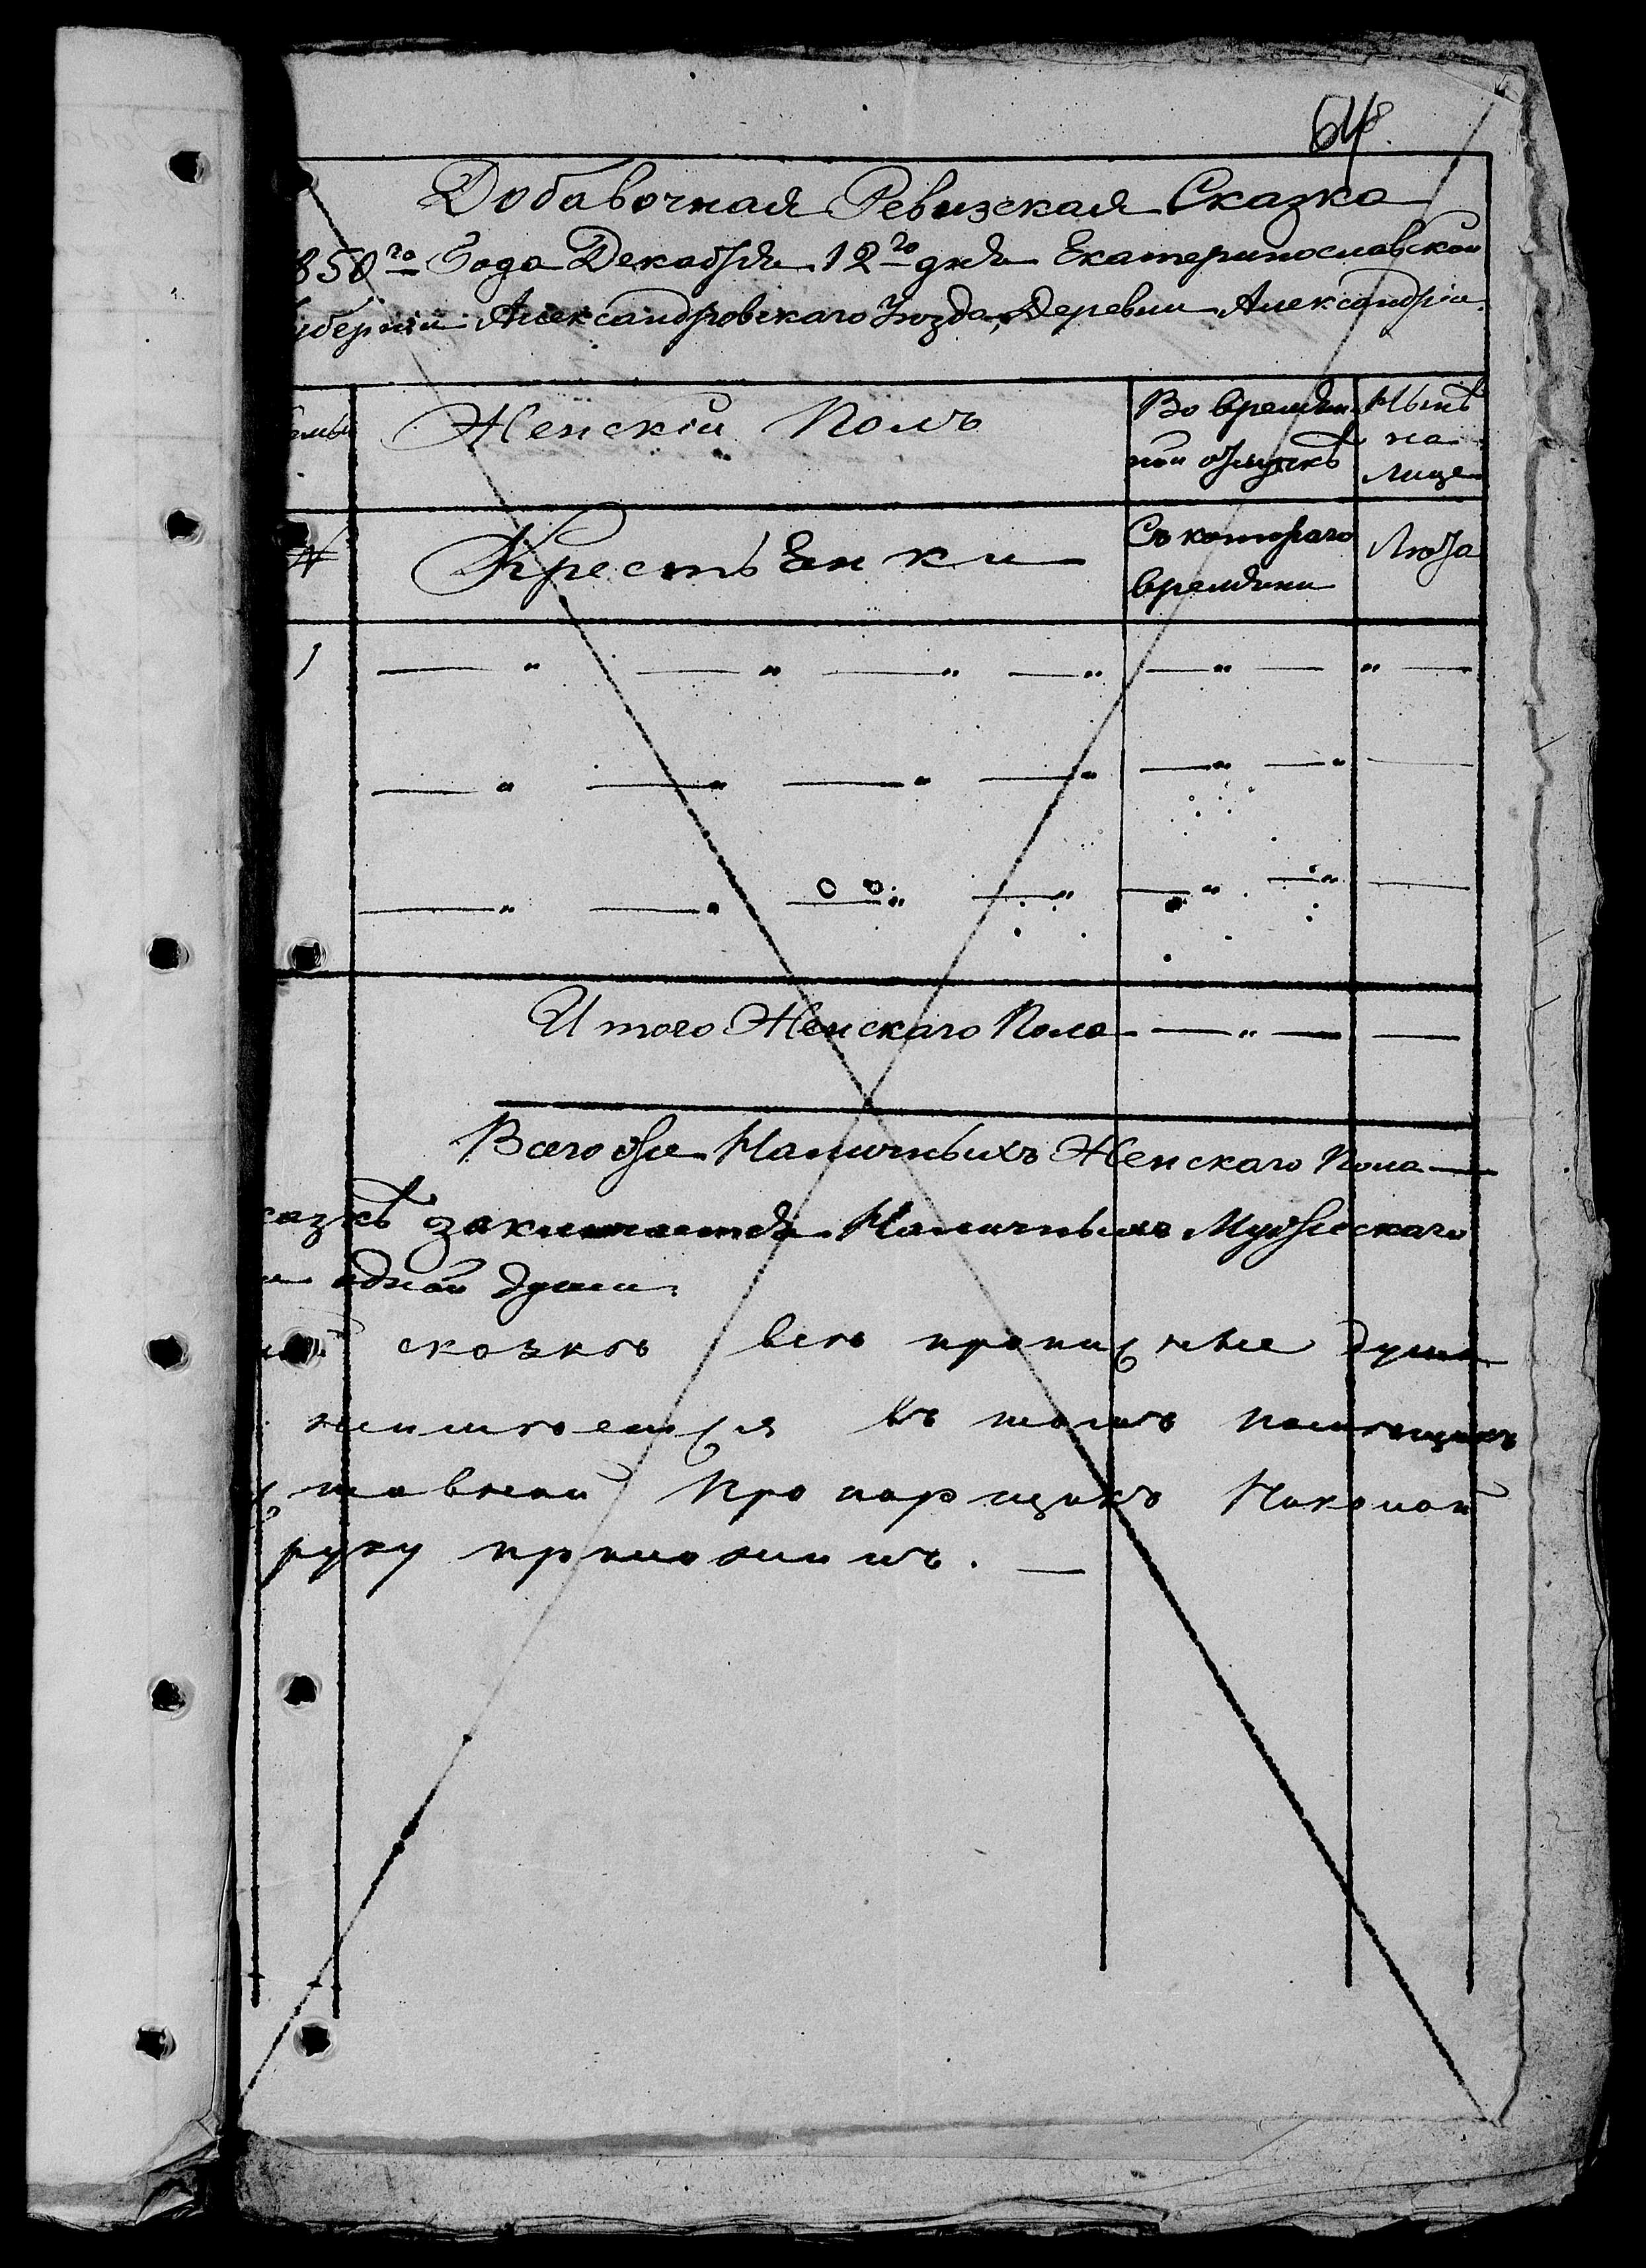 64
Добавочная Ревизская Сказка
850го Года Декабря 12го дня Екатеринославской
уберніи Александровскаго Уѣзда, Деревни Александріи
Женскій Полъ
Во времян
ной отлучкѣ
Нынѣ
на
лице
№
Крестьенки
Съ котораго
времяни
Лѣта
1
Итого Женскаго Пола
Всего же Наличныхъ Женскаго Пола
казкѣ заключается Наличныхъ Мужескаго
одной души
сказкѣ всѣ прописные души
въ томъ помѣщикъ
тавной Прапорщикъ Николай
руку приложилъ.